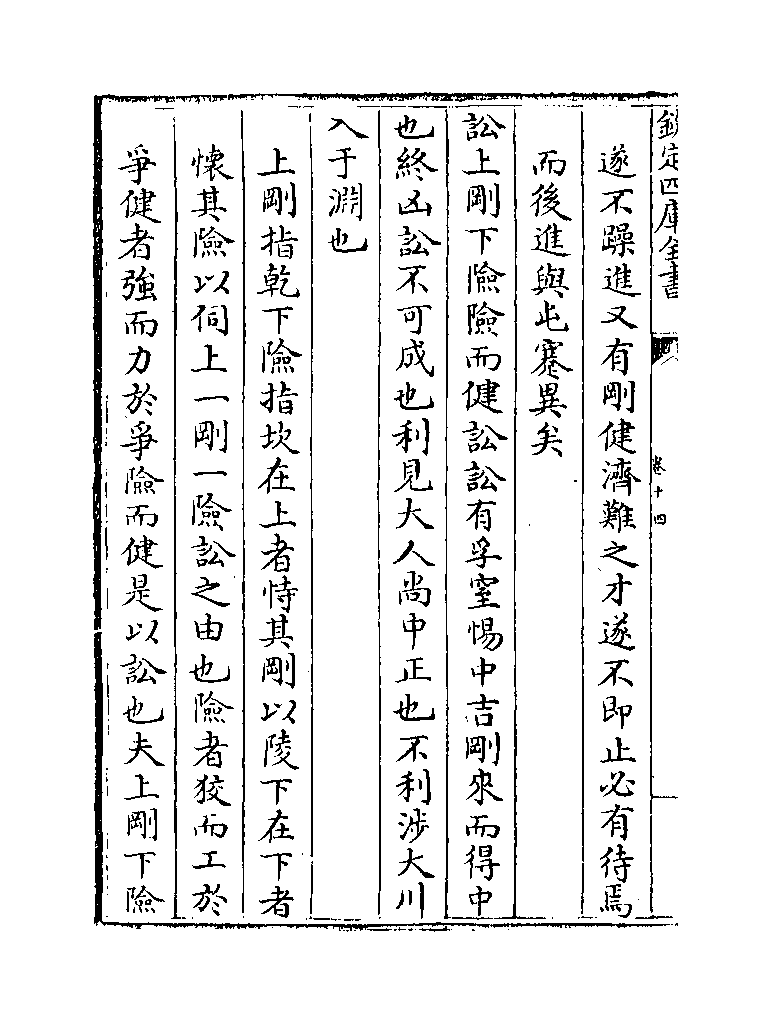 欽定四庫全書
卷十四
遂不躁進又有剛健濟難之才遂不即止必有待焉
而後進與屯蹇異矣
訟上剛下險險而健訟訟有孚窒惕中吉剛來而得中
也終凶訟不可成也利見大人尚中正也不利涉大川
入于淵也
上剛指乾下險指坎在上者恃其剛以陵下在下者
懷其險以伺上一剛一險訟之由也險者狡而工於
爭健者強而力於爭險而健是以訟也夫上剛下險